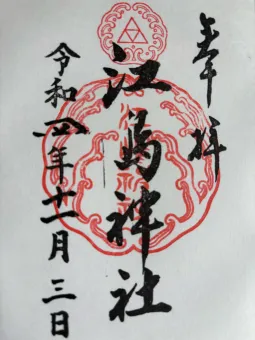 奉拝
江島神社
令和四年十一月三日